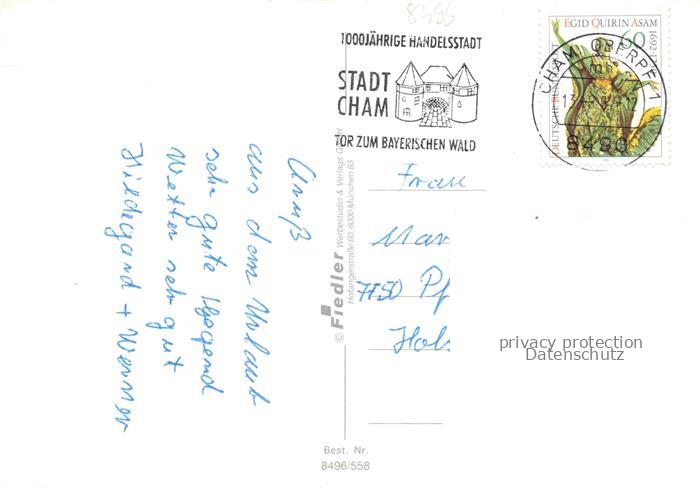 8496
1000JÄHRIGE HANDELSSTADT
STADT
CHAM
TOR ZUM BAYERISCHEN WALD
CHAM, OBERPF 1
8490
EGID QUIRIN ASAM
1692-
60
DEUTSCHE BUNDESPOST
Gruß
aus dem Urlaub
sehr gute Gegend
Wetter sehr gut
Hildegard + Werner
© Fiedler Werbestudio & Verlags GmbH
Hofangerstraße 60, 8000 München 83
Frau
Mar
7750 Pf
Hols
privacy protection
Datenschutz
Best. Nr.
8496/558